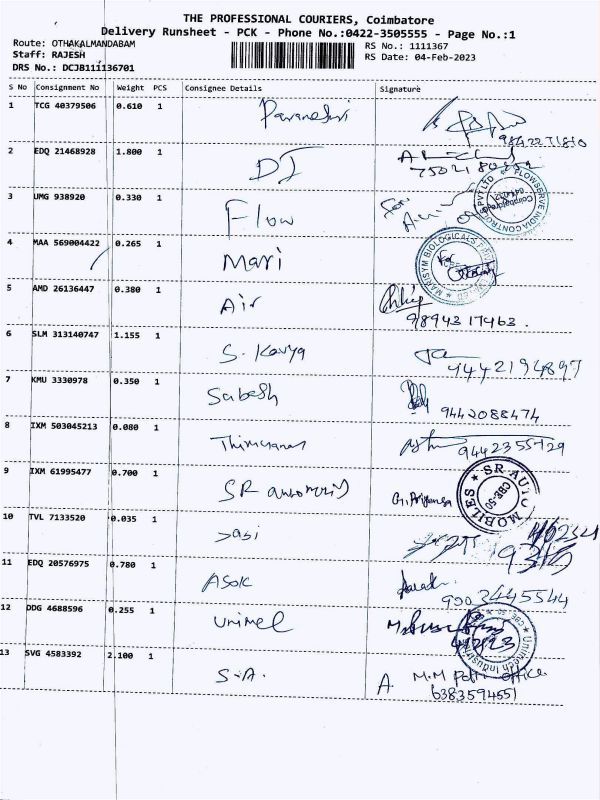 THE PROFESSIONAL COURIERS, Coimbatore
Delivery Runsheet - PCK - Phone No.:0422-3505555 - Page No.:1
Route: OTHAKALMANDABAM
Staff: RAJESH
DRS No.: DCJB111136701
RS No.: 1111367
RS Date: 04-Feb-2023
S No Consignment No Weight PCS Consignee Details Signature
1 TCG 40379506 0.610 1
2 EDQ 21468928 1.800 1 DJ
3 UMG 938920 0.330 1 Flow
FLOWSERVE INDIA CONTROL PVT LTD
4 MAA 569004422 0.265 1 Mari
MARISYM BIOLOGICALS
5 AMD 26136447 0.380 1 Air
9894317463.
6 SLM 313140747 1.155 1 S. Kavya
9442194897
7 KMU 3330978 0.350 1 Sabesh
9442088474
8 IXM 503045213 0.080 1
9442355729
9 IXM 61995477 0.700 1 SR G. Priyanga
SR AUTO MOBILES CBE-50
10 TVL 7133520 0.035 1 Sasi
11 EDQ 20576975 0.780 1 ASOK
9003445544
12 DDG 4688596 0.255 1 unimel
13 SVG 4583392 2.100 1 S.A. M.M office
6383594551